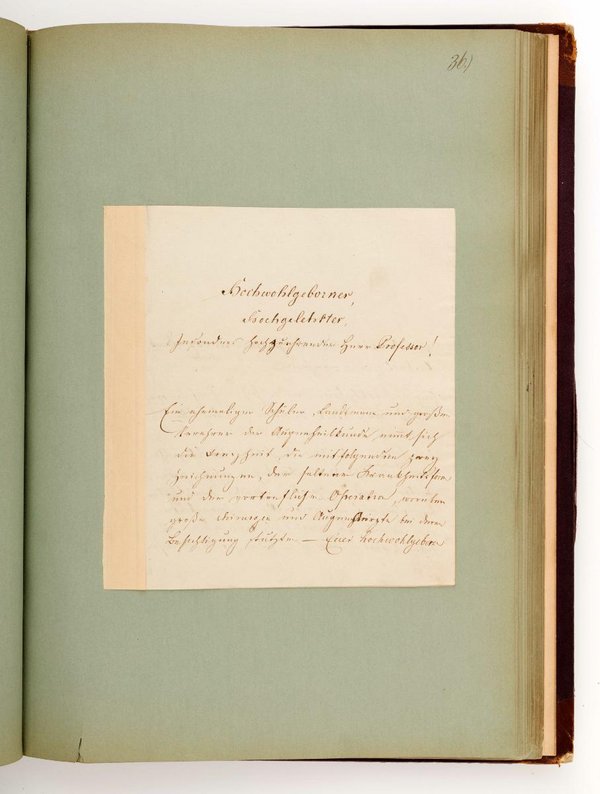 36.)
Hochwohlgeborner,
Hochgelehrter,
Insonders hochzuehrender Herr Professor!
Ein ehemaliger Schüler, und großer
Verehrer der Augenheilkunde nimt sich
die Freyheit, die mitfolgenden zwey
Zeichnungen, der seltene Krankheitsform
und der vortreflichen Operation, worüber
große Chirurge und Augenärzte bei deren
Besichtigung stutzten — Euer Hochwohlgeborn